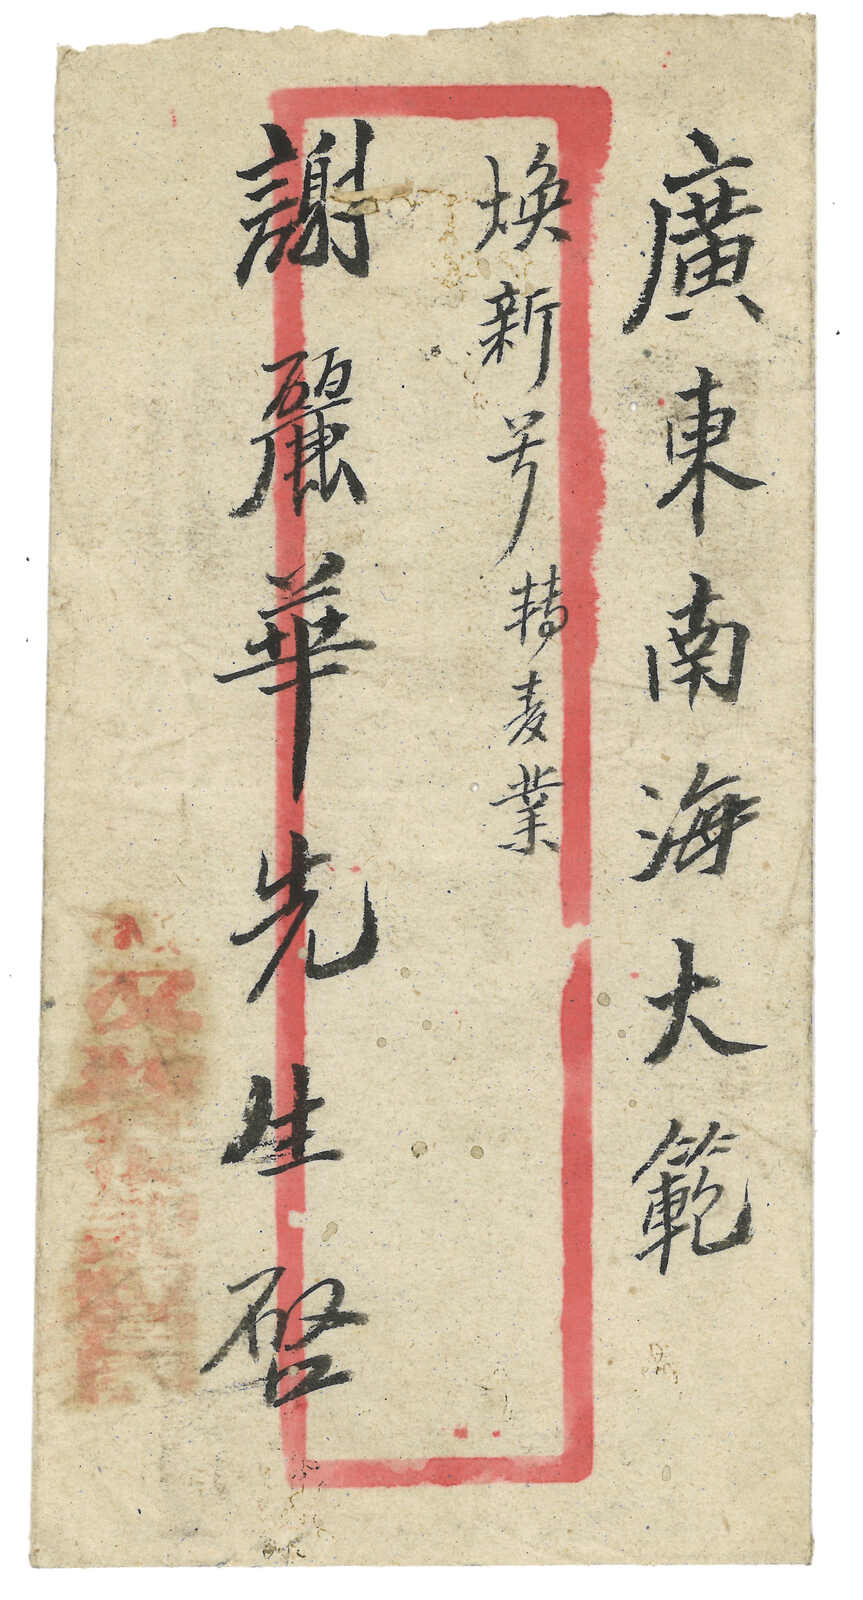 廣東南海大範
煥新号轉麦業
謝麗華先生啓